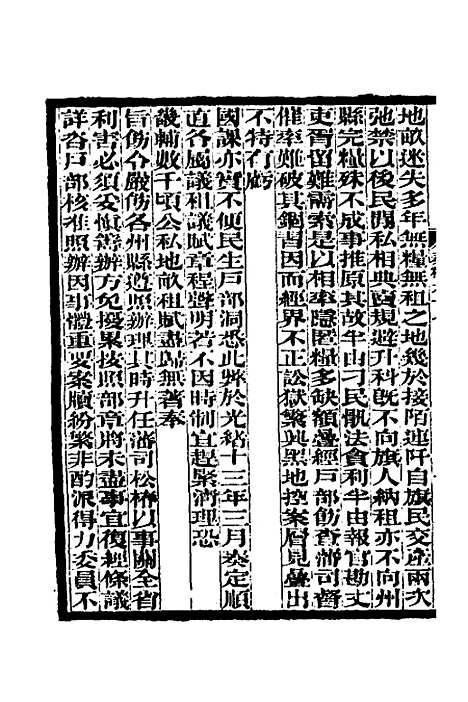 地畝迷失多年無糧無租之地幾於接陌連阡自旗民交產兩次
弛禁以後民間私相典賣規避升科既不向旗人納租亦不向州
縣完糧殊不成事推原其故半由刁民骫法貪利半由報官勘丈
吏胥留難需索是以相率隱匿糧多缺額疊經戶部飭查藩司督
催率難破其錮習因而經界不正訟獄繁興黑地控案層見疊出
不特有虧
國課亦實不便民生戶部洞悉此弊於光緒十三年三月奏定順
直各屬議租議賦章程聲明若不因時制宜趕緊清理恐
畿輔數千頃公私地畝租賦盡歸無著奉
旨飭令嚴飭各州縣遵照辦理其時升任藩司松椿以事關全省
利害必須妥慎籌辦方免擾累按照部章將未盡事宜復經條議
詳咨戶部核准照辦因事體重要案牘紛繁非酌派得力委員不